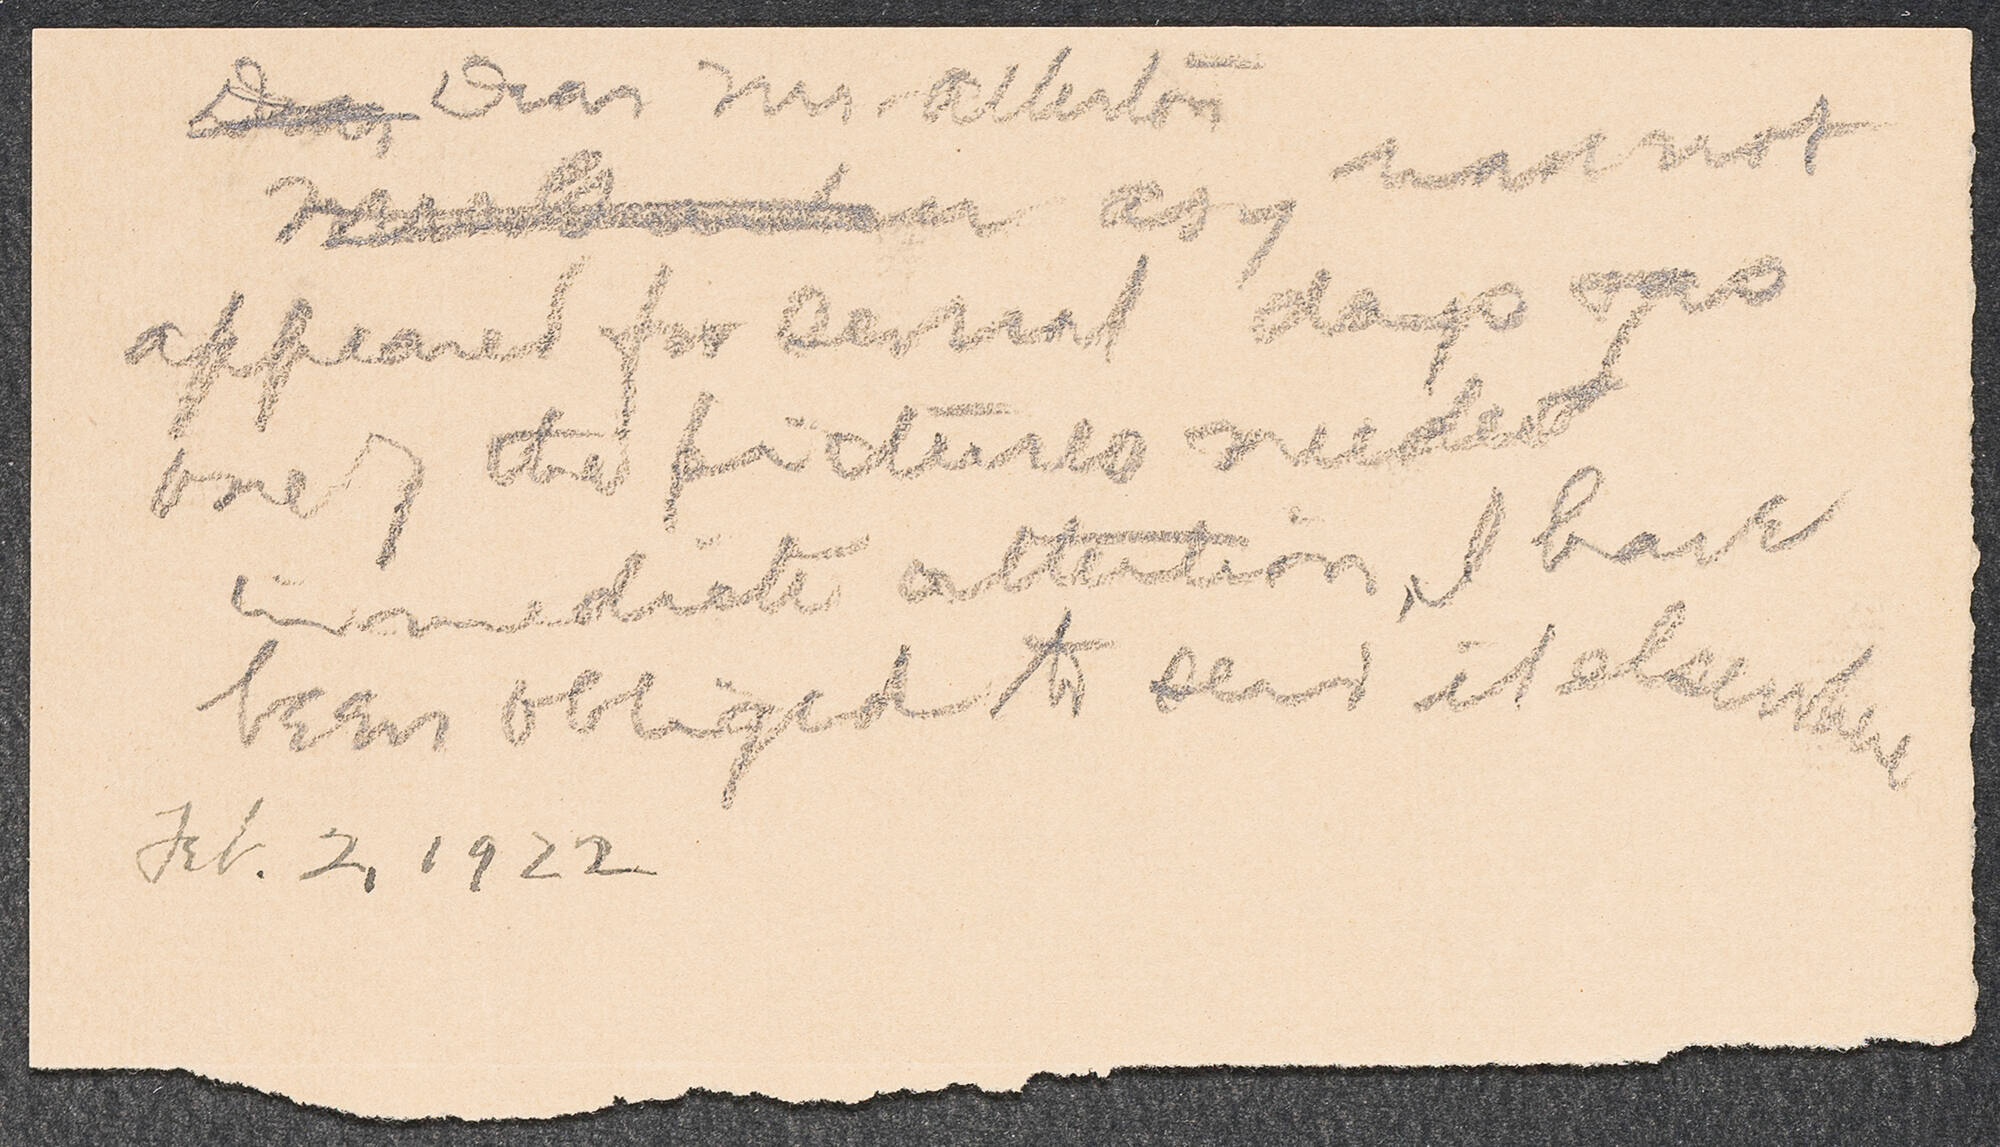 Dear Dear Mr. Allerton
as you have not
appeared for several days and
one of the pictures needed
immediate attention, I have
been obliged to send it elsewhere
Feb. 2, 1922